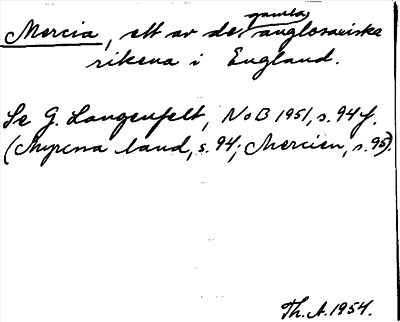 Mercia, ett av de gamla anglosaxiska
rikena i England.
Se G. Langenfelt, NoB 1951, s. 94 f.
(Myrcna land, s. 94; Mercien, s. 95).
Th. A. 1954.